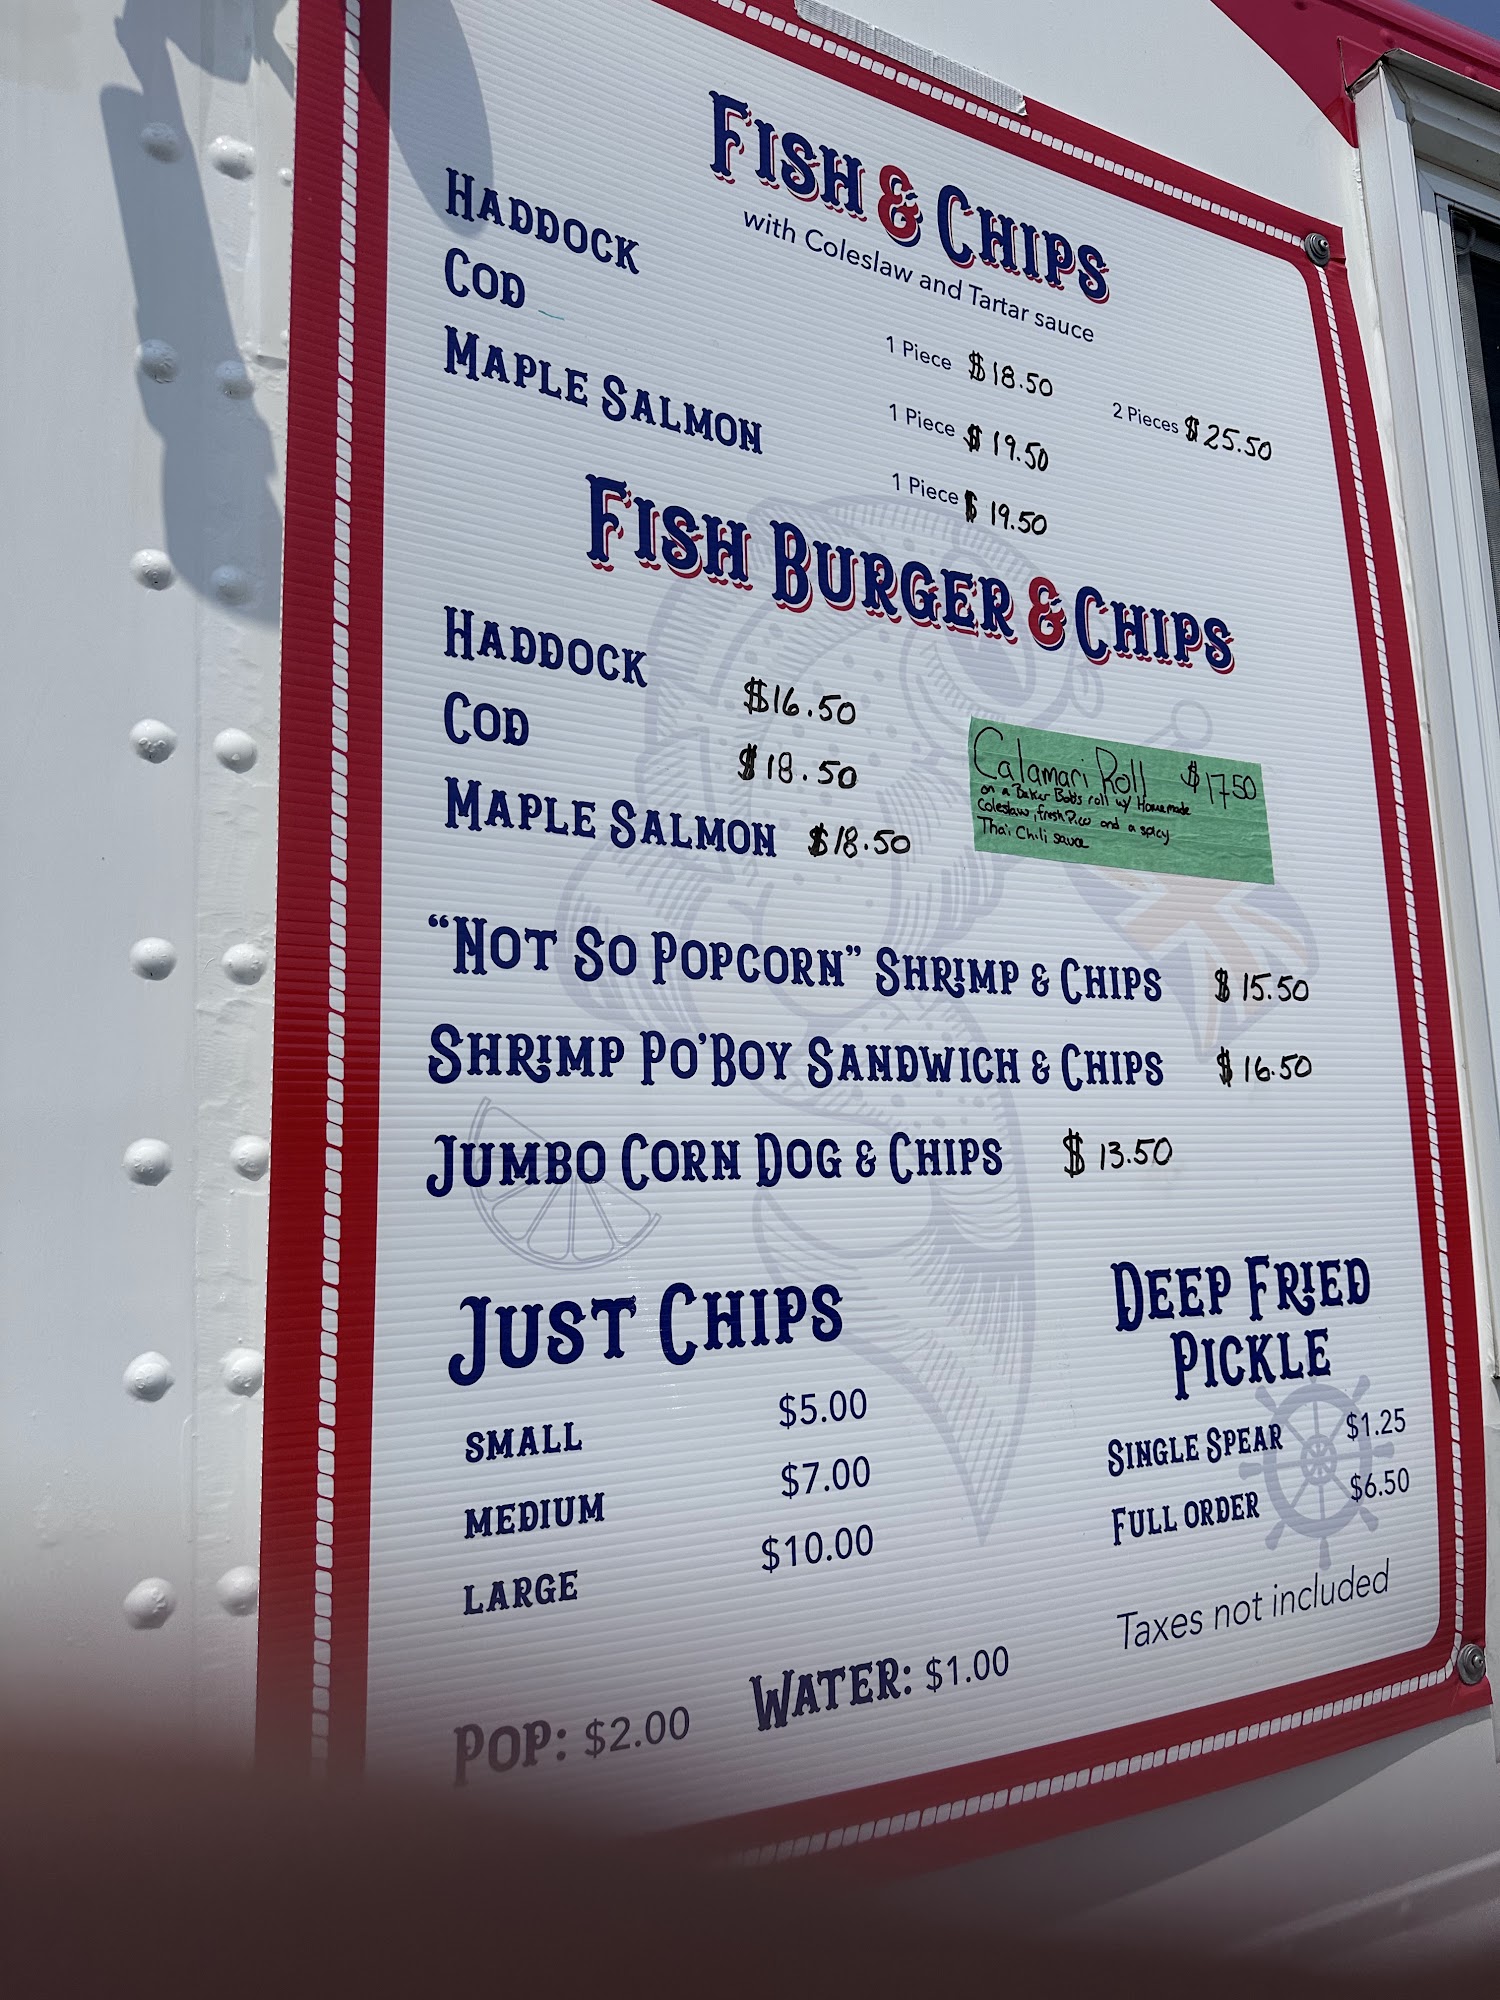 FISH & CHIPS
with Coleslaw and Tartar sauce
HADDOCK 1 Piece $18.50 2 Pieces $25.50
COD 1 Piece $19.50
MAPLE SALMON 1 Piece $19.50
FISH BURGER & CHIPS
HADDOCK $16.50
COD $18.50
MAPLE SALMON $18.50
Calamari Roll $17.50
on a Baker Bobs roll w/ Homemade
Coleslaw, fresh Pico and a spicy
Thai Chili sauce
"NOT SO POPCORN" SHRIMP & CHIPS $15.50
SHRIMP PO'BOY SANDWICH & CHIPS $16.50
JUMBO CORN DOG & CHIPS $13.50
JUST CHIPS
SMALL $5.00
MEDIUM $7.00
LARGE $10.00
DEEP FRIED
PICKLE
SINGLE SPEAR $1.25
FULL ORDER $6.50
Taxes not included
POP: $2.00 WATER: $1.00